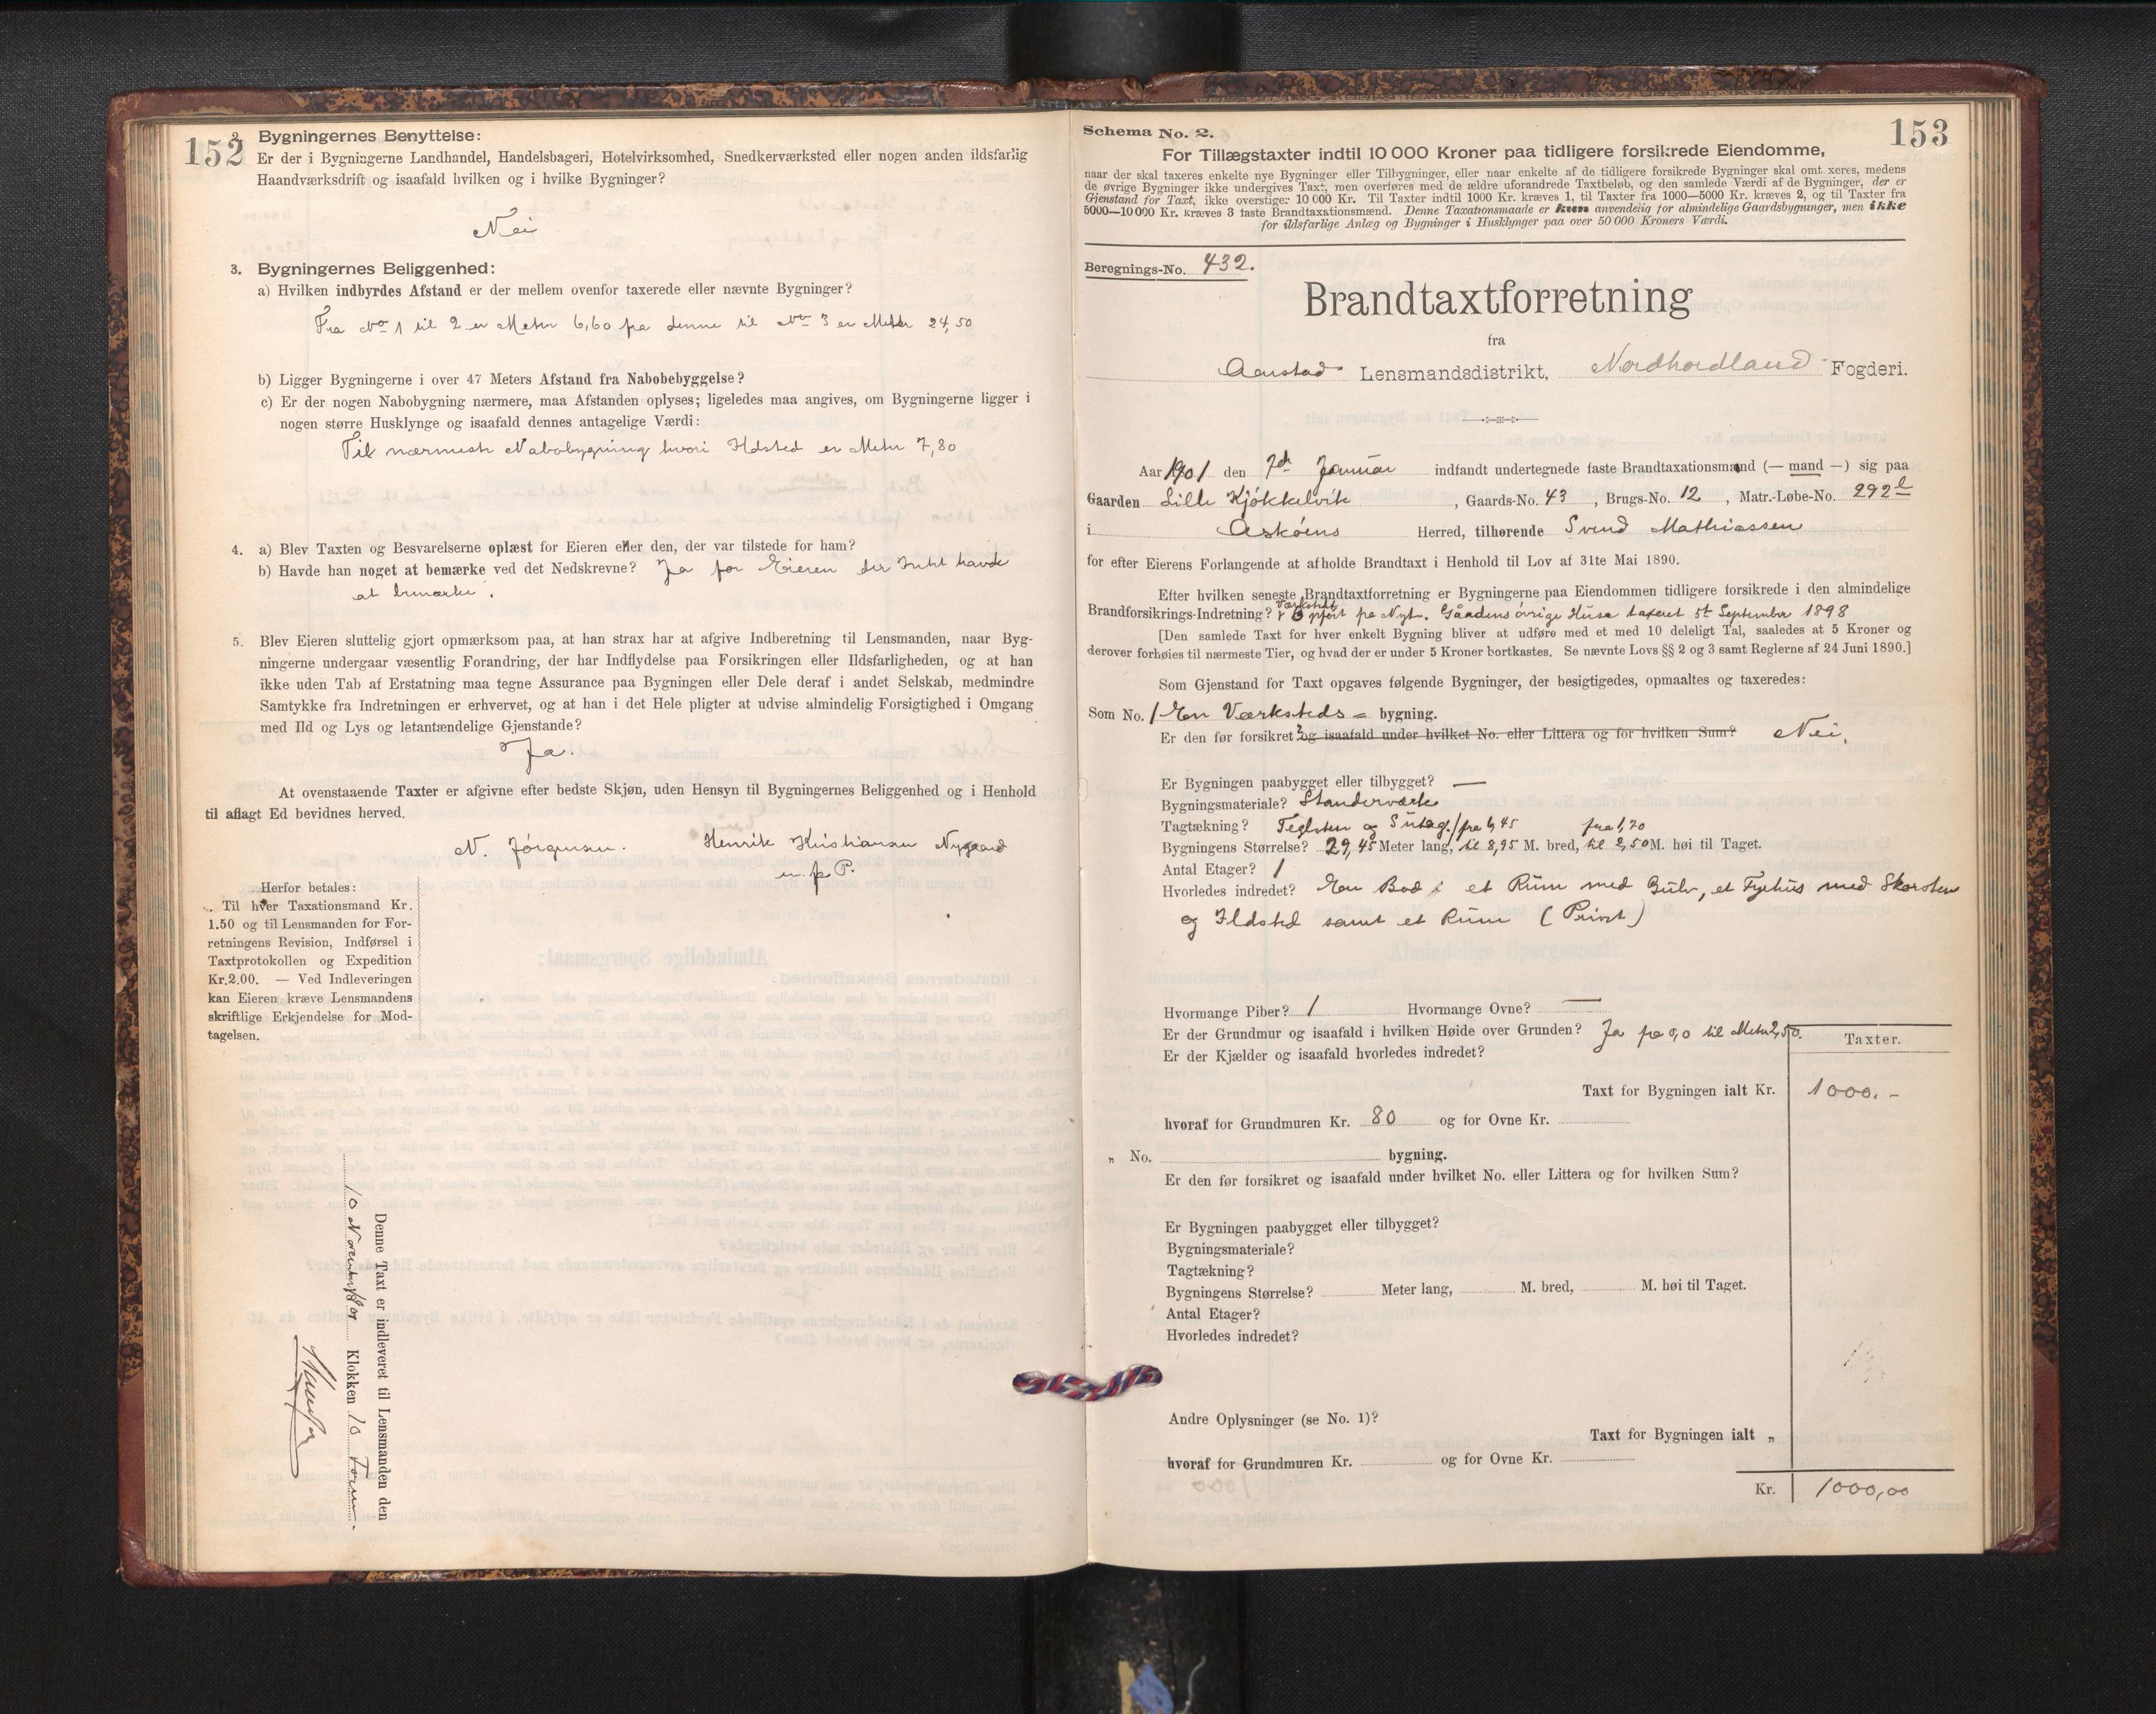 152
2. Bygningernes Benyttelse:
Er der i Bygningerne Landhandel, Handelsbageri, Hotelvirksomhed, Snedkerværksted eller nogen anden ildsfarlig
Haandværksdrift og isaafald hvilken og i hvilke Bygninger?
Nei
3. Bygningernes Beliggenhed:
a) Hvilken indbyrdes Afstand er der mellem ovenfor taxerede eller nævnte Bygninger?
Fra No 1 til 2 er Meter 6,60 fra denne til No 3 er Meter 24,50
b) Ligger Bygningerne i over 47 Meters Afstand fra Nabobebyggelse?
c) Er der nogen Nabobygning nærmere, maa Afstanden oplyses; ligeledes maa angives, om Bygningerne ligger i
nogen større Husklynge og isaafald dennes antagelige Værdi:
Til nærmeste Nabobygning hvori Ildsted er Meter 7,80
4. a) Blev Taxten og Besvarelserne oplæst for Eieren eller den, der var tilstede for ham?
b) Havde han noget at bemærke ved det Nedskrevne? Ja for Eieren der Intet havde
at bemærke.
5. Blev Eieren sluttelig gjort opmærksom paa, at han strax har at afgive Indberetning til Lensmanden, naar Byg-
ningerne undergaar væsentlig Forandring, der har Indflydelse paa Forsikringen eller Ildsfarligheden, og at han
ikke uden Tab af Erstatning maa tegne Assurance paa Bygningen eller Dele deraf i andet Selskab, medmindre
Samtykke fra Indretningen er erhvervet, og at han i det Hele pligter at udvise almindelig Forsigtighed i Omgang
med Ild og Lys og letantændelige Gjenstande?
Ja.
At ovenstaaende Taxter er afgivne efter bedste Skjøn, uden Hensyn til Bygningernes Beliggenhed og i Henhold
til aflagt Ed bevidnes herved.
N. Jörgensen. Henrik Kristiansen Nygaard
m. p. P.
Herfor betales:
Til hver Taxationsmand Kr.
1.50 og til Lensmanden for For-
retningens Revision, Indførsel i
Taxtprotokollen og Expedition
Kr. 2.00. — Ved Indleveringen
kan Eieren kræve Lensmandens
skriftlige Erkjendelse for Mod-
tagelsen.
Denne Taxt er indleveret til Lensmanden den
10 Klokken 10 Form.
153
Schema No. 2.
For Tillægstaxter indtil 10 000 Kroner paa tidligere forsikrede Eiendomme,
naar der skal taxeres enkelte nye Bygninger eller Tilbygninger, eller naar enkelte af de tidligere forsikrede Bygninger skal omt xeres, medens
de øvrige Bygninger ikke undergives Taxt, men overføres med de ældre uforandrede Taxtbeløb, og den samlede Værdi af de Bygninger, der er
Gjenstand for Taxt, ikke overstiger 10 000 Kr. Til Taxter indtil 1000 Kr. kræves 1, til Taxter fra 1000—5000 Kr. kræves 2, og til Taxter fra
5000—10 000 Kr. kræves 3 faste Brandtaxationsmænd. Denne Taxationsmaade er kun anvendelig for almindelige Gaardsbygninger, men ikke
for ildsfarlige Anlæg og Bygninger i Husklynger paa over 50 000 Kroners Værdi.
Beregnings-No. 432.
Brandtaxtforretning
fra
Lensmandsdistrikt, Nordhordland Fogderi.
Aar 1901 den 7de Januar indfandt undertegnede faste Brandtaxationsmænd (— mand —) sig paa
Gaarden Lille Kjökkelvik, Gaards-No. 43, Brugs-No. 12, Matr.-Løbe-No. 292 l
i Asköens Herred, tilhørende Svend Mathiassen
for efter Eierens Forlangende at afholde Brandtaxt i Henhold til Lov af 31te Mai 1890.
Efter hvilken seneste Brandtaxtforretning er Bygningerne paa Eiendommen tidligere forsikrede i den almindelige
Værkstedt
Brandforsikrings-Indretning? Opfört pa Nyt. Gaardens övrige Huse taxeret 5te September 1898
[Den samlede Taxt for hver enkelt Bygning bliver at udføre med et med 10 deleligt Tal, saaledes at 5 Kroner og
derover forhøies til nærmeste Tier, og hvad der er under 5 Kroner bortkastes. Se nævnte Lovs §§ 2 og 3 samt Reglerne af 24 Juni 1890.]
Som Gjenstand for Taxt opgaves følgende Bygninger, der besigtigedes, opmaaltes og taxeredes:
Som No. 1 En Værksteds= bygning.
Er den før forsikret? og isaafald under hvilket No. eller Littera og for hvilken Sum? Nei.
Er Bygningen paabygget eller tilbygget? —
Bygningsmateriale? Standerværk
Tagtækning? Teglsten og / fra 4,45 fra 1,70
Bygningens Størrelse? 29,45 Meter lang, til 8,95 M. bred, til 2,50 M. høi til Taget.
Antal Etager? 1
Hvorledes indredet? En Bod i et Rum med Gulv, et Fyrhus med Skorsten
og Ildsted samt et Rum (Privet)
Hvormange Piber? 1 Hvormange Ovne? —
Er der Grundmur og isaafald i hvilken Høide over Grunden? Ja fra 0,0 til Meter 2,50.
Er der Kjælder og isaafald hvorledes indredet?
Taxter.
Taxt for Bygningen ialt Kr. 1000.-
hvoraf for Grundmuren Kr. 80 og for Ovne Kr.
„ No. bygning.
Er den før forsikret og isaafald under hvilket No. eller Littera og for hvilken Sum?
Er Bygningen paabygget eller tilbygget?
Bygningsmateriale?
Tagtækning?
Bygningens Størrelse? Meter lang, M. bred, M. høi til Taget.
Antal Etager?
Hvorledes indredet?
Andre Oplysninger (se No. 1)?
Taxt for Bygningen ialt „
hvoraf for Grundmuren Kr. og for Ovne Kr.
Kr. 1000,00